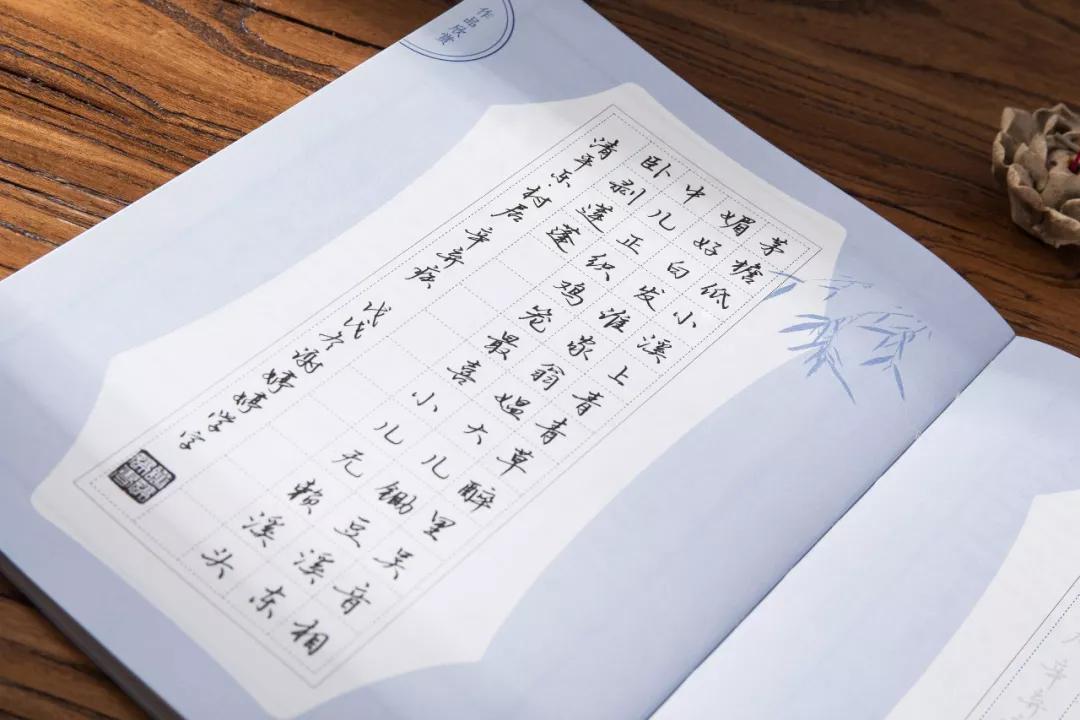 作品欣赏
茅檐低小溪上青青草醉里吴音相
媚好白发谁家翁媪大儿锄豆溪东
中儿正织鸡笼最喜小儿无赖溪头
卧剥莲蓬
清平乐·村居 辛弃疾 戊戌冬谢婷婷学字
辛弃